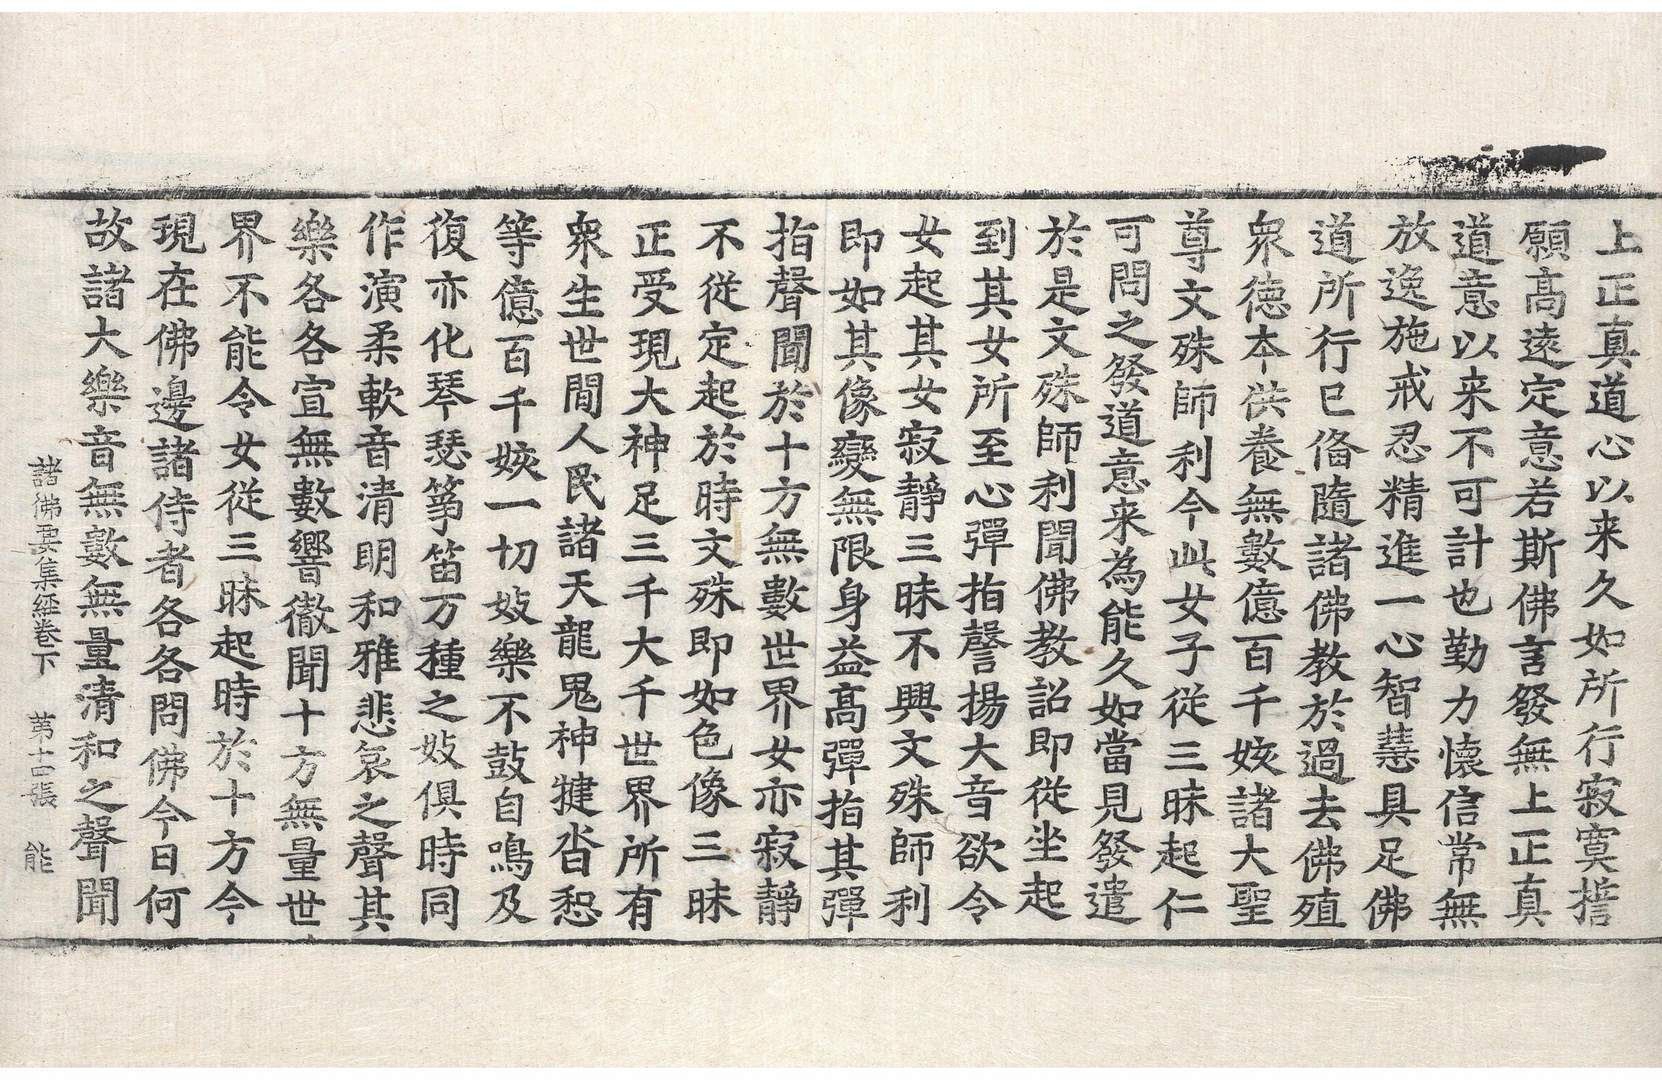 上正真道心以来久如所行寂寞誓
願高遠定意若斯佛言發無上正真
道意以来不可計也勤力懷信常無
放逸施戒忍精進一心智慧具足佛
道所行已偹隨諸佛教於過去佛殖
衆徳本供養無數億百千姟諸大聖
尊文殊師利今此女子從三昧起仁
可問之發道意来為能久如當見發遣
於是文殊師利聞佛教詔即從坐起
到其女所至心彈指謦揚大音欲令
女起其女寂靜三昧不興文殊師利
即如其像變無限身益高彈指其彈
指聲聞於十方無數世界女亦寂靜
不從定起於時文殊即如色像三昧
正受現大神足三千大千世界所有
衆生世間人民諸天龍鬼神揵沓惒
等億百千姟一切妓樂不鼓自鳴及
復亦化琴瑟箏笛万種之妓俱時同
作演柔軟音清明和雅悲哀之聲其
樂各各宣無數響徹聞十方無量世
界不能令女從三昧起時於十方今
現在佛邊諸侍者各各問佛今日何
故諸大樂音無數無量清和之聲聞
諸佛要集經卷下　第十四張　能